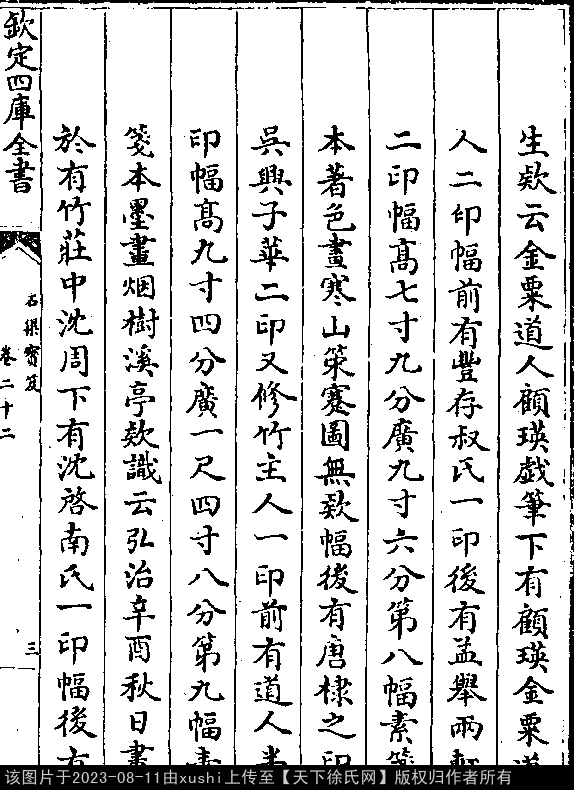 生欵云金粟道人顧瑛戯筆下有顧瑛金粟道
人二印幅前有豐存叔氏一印後有孟舉兩軒
二印幅髙七寸九分廣九寸六分第八幅素箋
本著色畫寒山策蹇圖無欵幅後有唐棣之印
吳興子華二印又修竹主人一印前有道人
印幅髙九寸四分廣一尺四寸八分第九幅素
箋本墨畫烟樹溪亭欵識云弘治辛酉秋日畫
於有竹莊中沈周下有沈啓南氏一印幅後有
欽定四庫全書
石渠寳笈
卷二十二
三
该图片于2023-08-11由xushi上传至【天下徐氏网】版权归作者所有